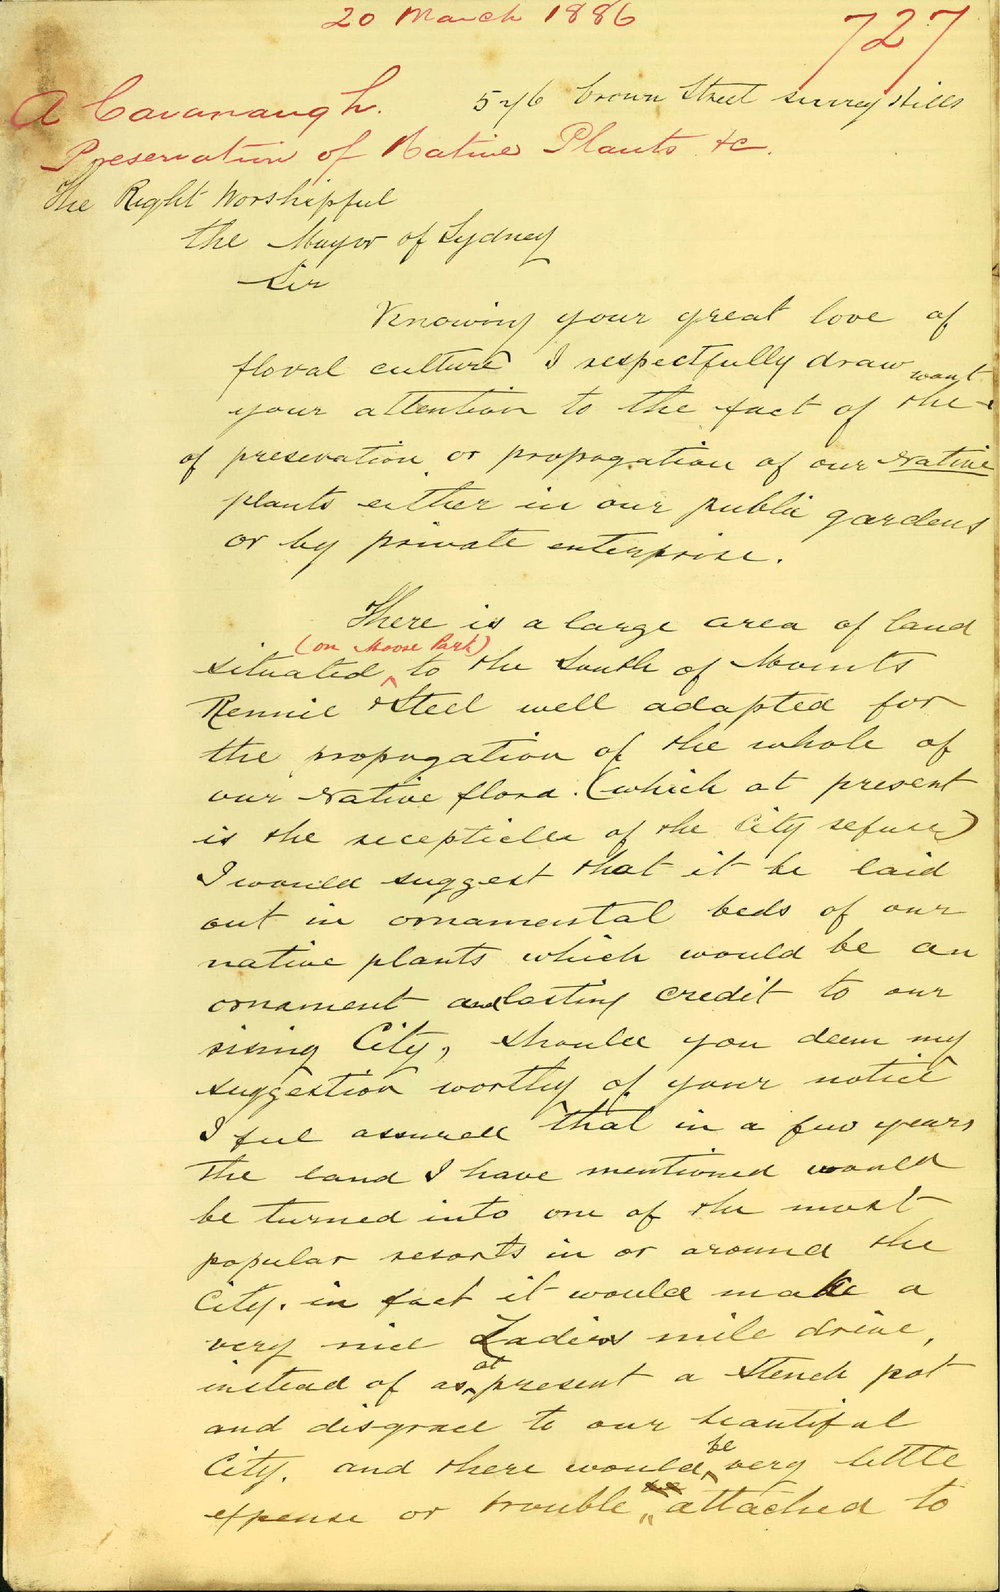 20 March 1886
727
A Cavanaugh.
546 Crown Street Surrey Hills
Preservation of Native Plants &c.
The Right Worshipful
the Mayor of Sydney
Sir
Knowing your great love of
floral culture I respectfully draw
your attention to the fact of the want
of preservation or propogation of our Native
plants either in our public gardens
or by private enterprise.
There is a large area of land
situated (on Moore Park) to the South of Mounts
Rennie & Steel well adapted for
the propogation of the whole of
our Native flora. (which at present
is the recepticle of the City refuse)
I would suggest that it be laid
out in ornamental beds of our
native plants which would be an
ornament and lasting credit to our
rising City, should you deem my
suggestion worthy of your notice
I feel assured that in a few years
the land I have mentioned would
be turned into one of the most
popular resorts in or around the
City. in fact it would make a
very nice Ladies mile drive,
instead of as at present a stench pot
and disgrace to our beautiful
City. and there would be very little
expense or trouble attached to